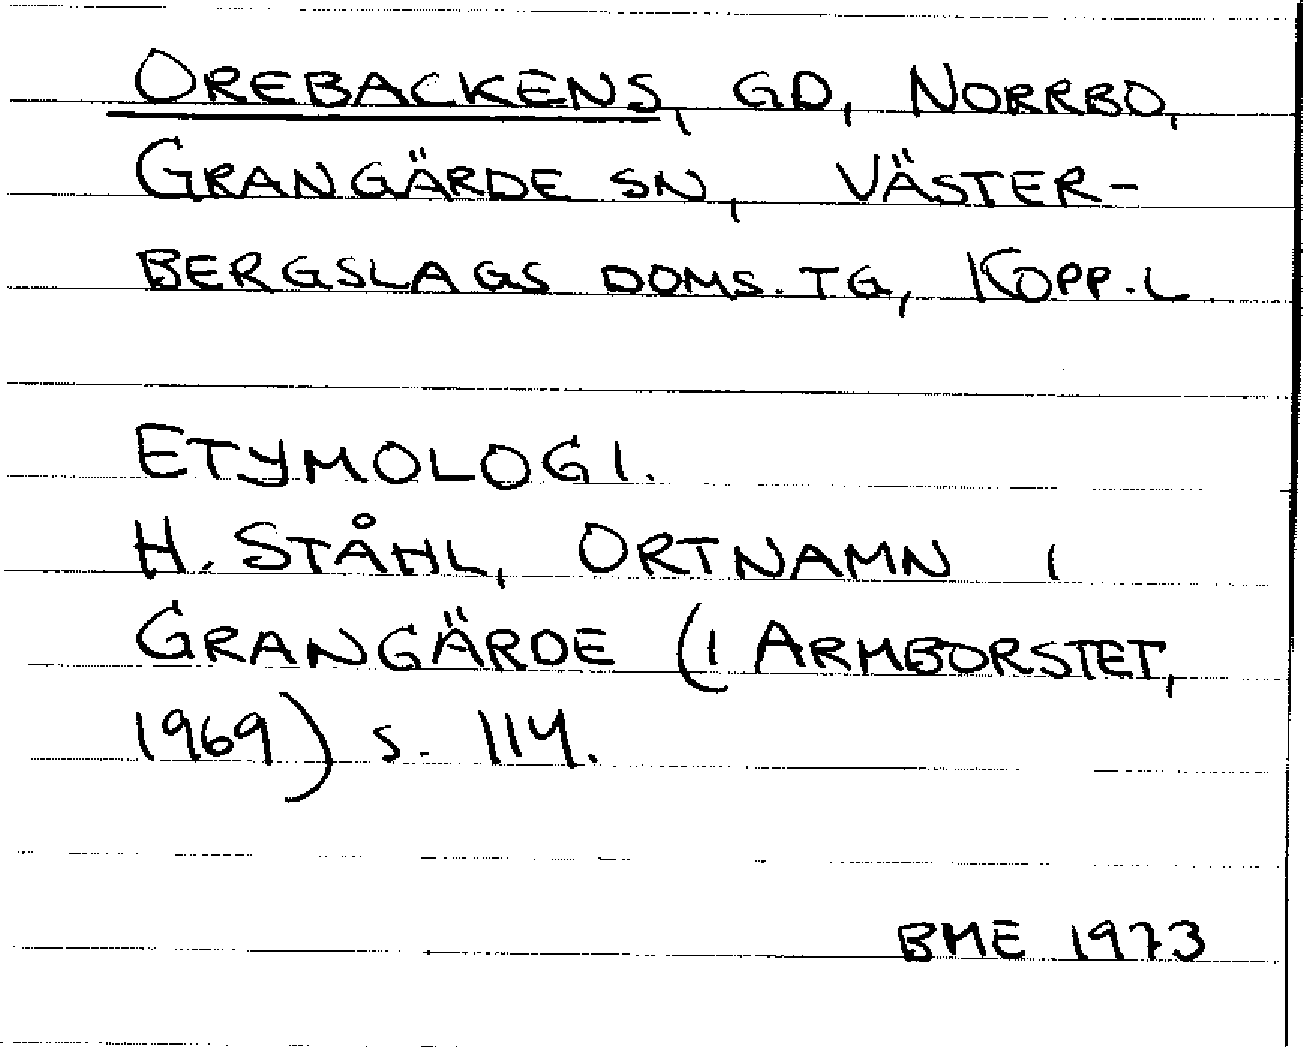 OREBACKENS, GD, NORRBO,
GRANGÄRDE SN, VÄSTER-
BERGSLAGS DOMS. TG, KOPP. L
ETYMOLOGI.
H. STÅHL, ORTNAMN I
GRANGÄRDE (I ARMBORSTET,
1969) S. 114.
BME 1973